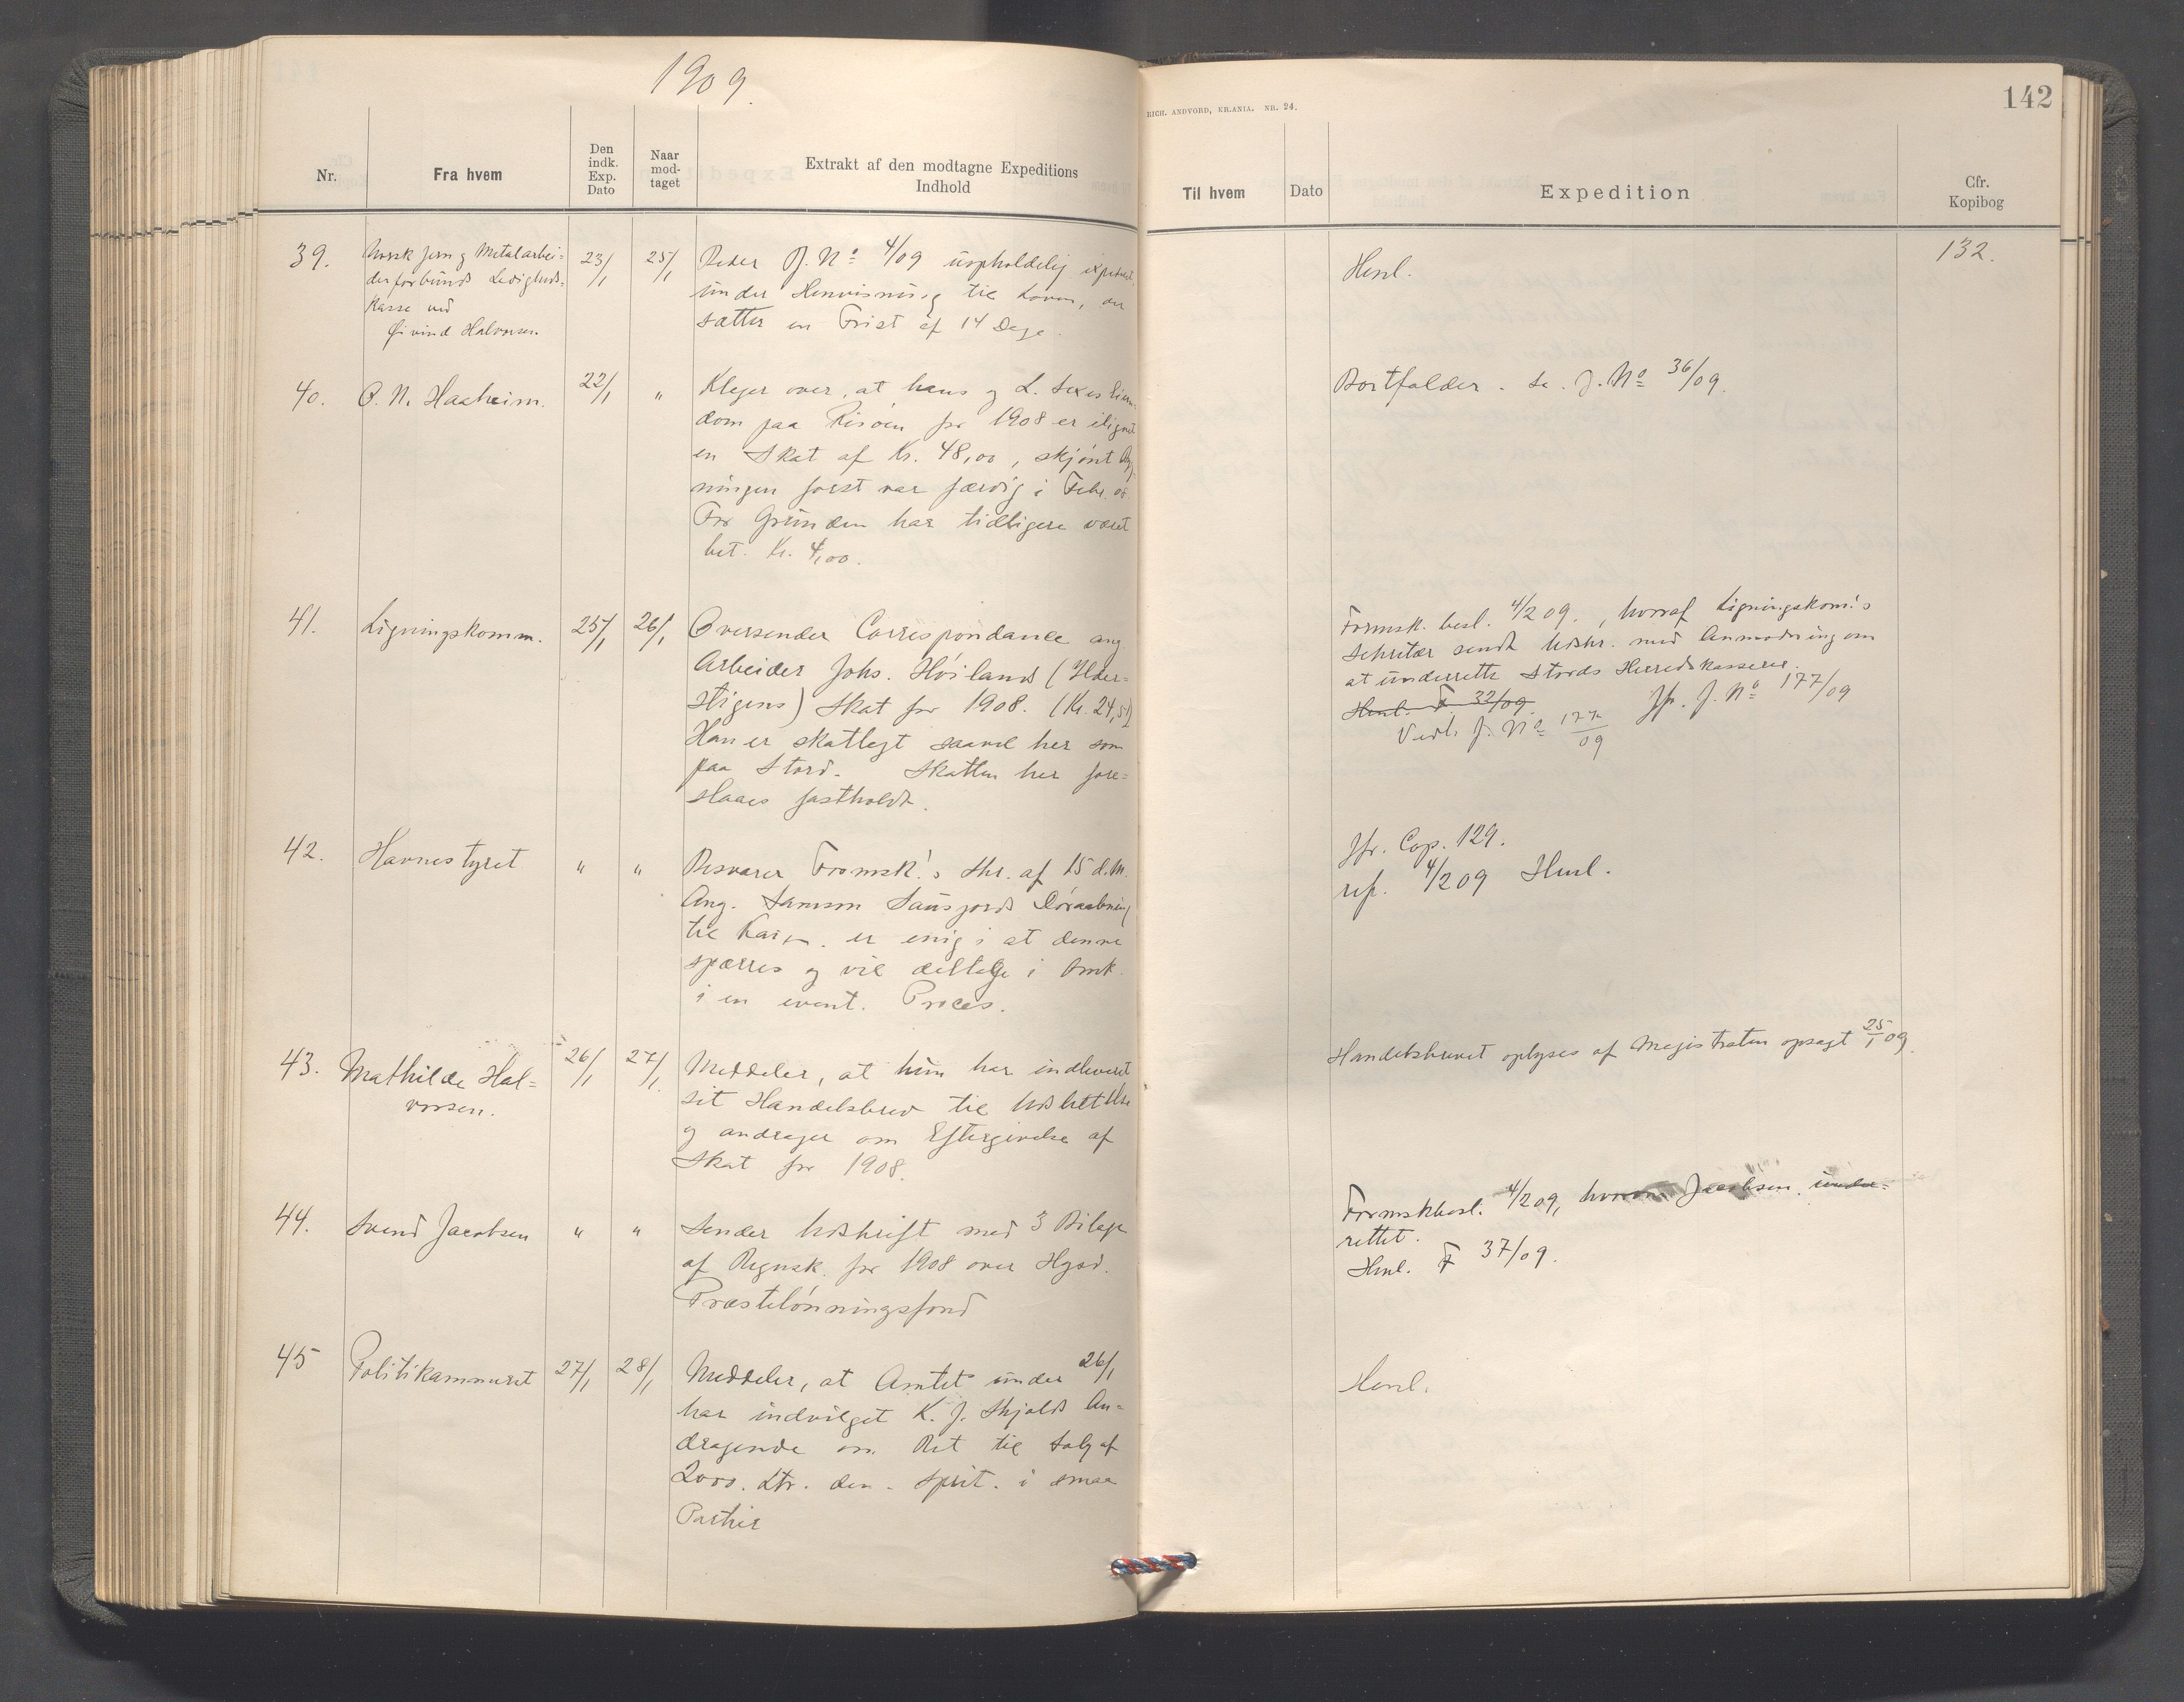 1909.
Nr.
Fra hvem
Den indk. Exp. Dato
Naar mod-taget
Extrakt af den modtagne Expeditions Indhold
39.
Norsk Jern g Metalarbei=
derforbunds Ledigheds=
kasse ved
Øivind Halvorsen.
23/1
25/1
Beder J. No 4/09 uopholdelig
under Henvisning til Loven, og
sætter en Frist af 14 Dage.
40.
O. N. Haaheim.
22/1
"
Klager over, at hans g L.
dom paa Risøen for 1908 er ilignet
en Skat af Kr. 48,00, skjønt
ningen først var færdig i Febr. 08.
For Grunden har tidligere været
bet. Kr. 4,00.
41.
Ligningskomm.
25/1
26/1
Oversender Correspondance ang.
Arbeider Johs. Høilands (
stigens) Skat for 1908. (Kr. 24,51)
Han er skatlagt saavel her som
paa Stord. Skatten her fore=
slaaes fastholdt.
42.
Havnestyret
"
"
Besvarer Formsk!s Skr. af 15 d.M.
Ang. Samson Sausjords Døraabning
til Kaien. er enig i at denne
spærres g vil deltage i Omk.
i en event. Proces.
43.
Mathilde Hal=
vorsen.
26/1
27/1.
Meddeler, at hun har indleveret
sit Handelsbrev til Udslettelse
g andrager om Eftergivelse af
Skat for 1908.
44.
Svend Jacobsen
"
"
Sender Udskrift med 3 Bilage
af Regnsk. for 1908 over Hgsd.
Præstelønningsfond
45
Politikammeret
27/1
28/1
Meddeler, at Amtet under 26/1
har indvilget K. J. Skjolds An=
dragende om Ret til Salg af
2000. Ltr. den. Sprit. i smaa
Partier
RICH. ANDVORD, KR.ANIA. NR. 24.
142
Til hvem
Dato
Expedition
Cfr. Kopibog
Henl.
132.
Bortfalder. Se. J. No 36/09.
Formsk. besl. 4/2 09., hvoraf Ligningskom!s
Sekretær sendt Udskr. med Anmodning om
at underrette Stords Herredskasserer.
Henl. F. 32/09.
Jfr. J. No 177/09
Vedl. J. No 177/09
Jfr. Cop. 129.
ref. 4/2 09 Henl.
Handelsbrevet oplyses af Magistraten opsagt 25/1 09.
Formskbesl. 4/2 09, hvorom Jacobsen under=
rettet.
Henl. F 37/09.
Henl.